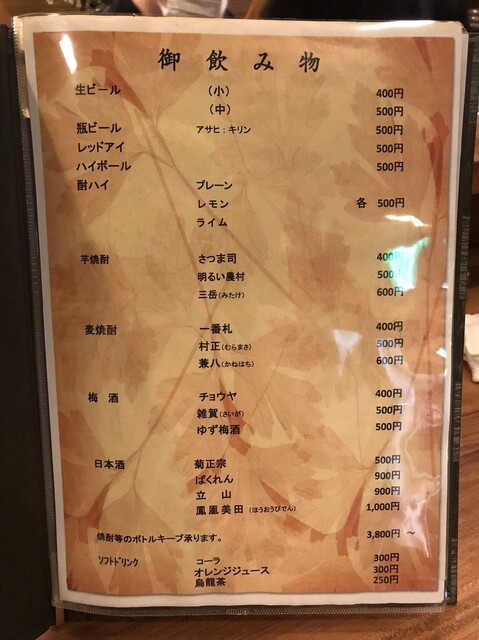 御飲み物
生ビール （小） 400円
（中） 500円
瓶ビール アサヒ：キリン 500円
レッドアイ 500円
ハイボール 500円
酎ハイ プレーン
レモン 各 500円
ライム
芋焼酎 さつま司 400円
明るい農村 500円
三岳（みたけ） 600円
麦焼酎 一番札 400円
村正（むらまさ） 500円
兼八（かねはち） 600円
梅酒 チョウヤ 400円
雑賀（さいが） 500円
ゆず梅酒 500円
日本酒 菊正宗 500円
ばくれん 900円
立山 900円
鳳凰美田（ほうおうびでん） 1,000円
焼酎等のボトルキープ承ります。 3,800円 ～
ソフトドリンク コーラ 300円
オレンジジュース 300円
烏龍茶 250円